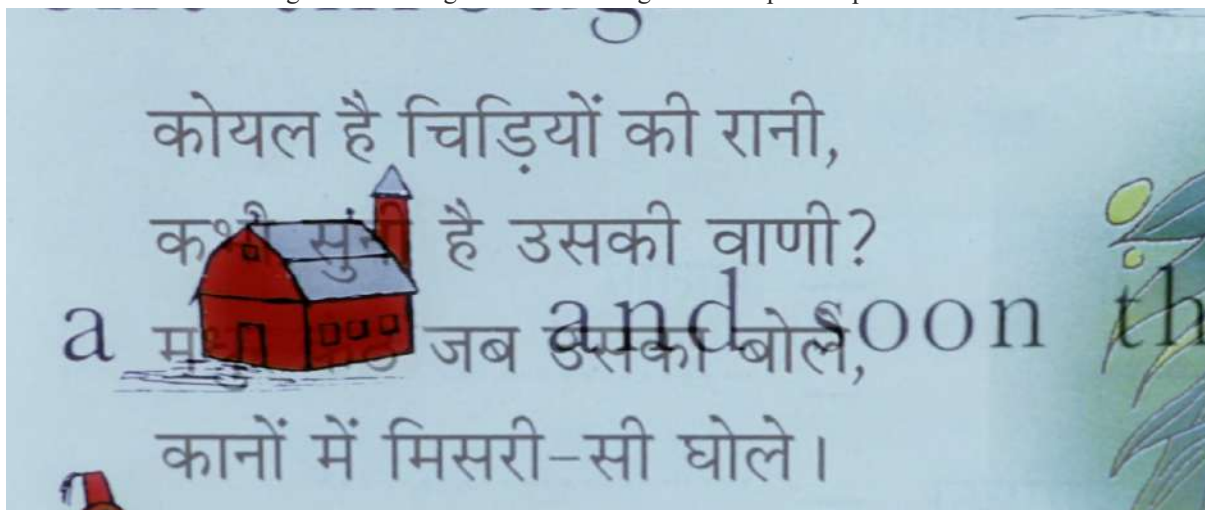 कोयल है चिड़ियों की रानी,
कभी सुनी है उसकी वाणी?
a and soon
जब उसका बोले,
कानों में मिसरी-सी घोले।